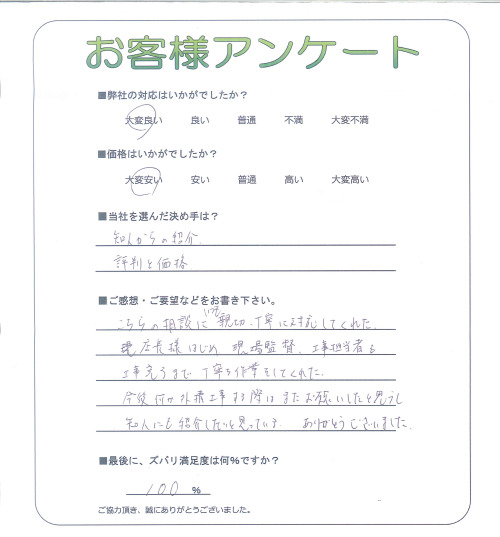 お客様アンケート
■弊社の対応はいかがでしたか？
大変良い 良い 普通 不満 大変不満
■価格はいかがでしたか？
大変安い 安い 普通 高い 大変高い
■当社を選んだ決め手は？
知人からの紹介.
評判と価格
■ご感想・ご要望などをお書き下さい。
こちらの相談にいつも親切、丁寧に対応してくれた.
店長様はじめ 現場監督、工事担当者も
工事完了まで丁寧な作業をしてくれた.
今後何か外構工事する際はまたお願いしたいと思うし
知人にも紹介したいと思っている. ありがとうございました.
■最後に、ズバリ満足度は何%ですか？
100 %
ご協力頂き、誠にありがとうございました。